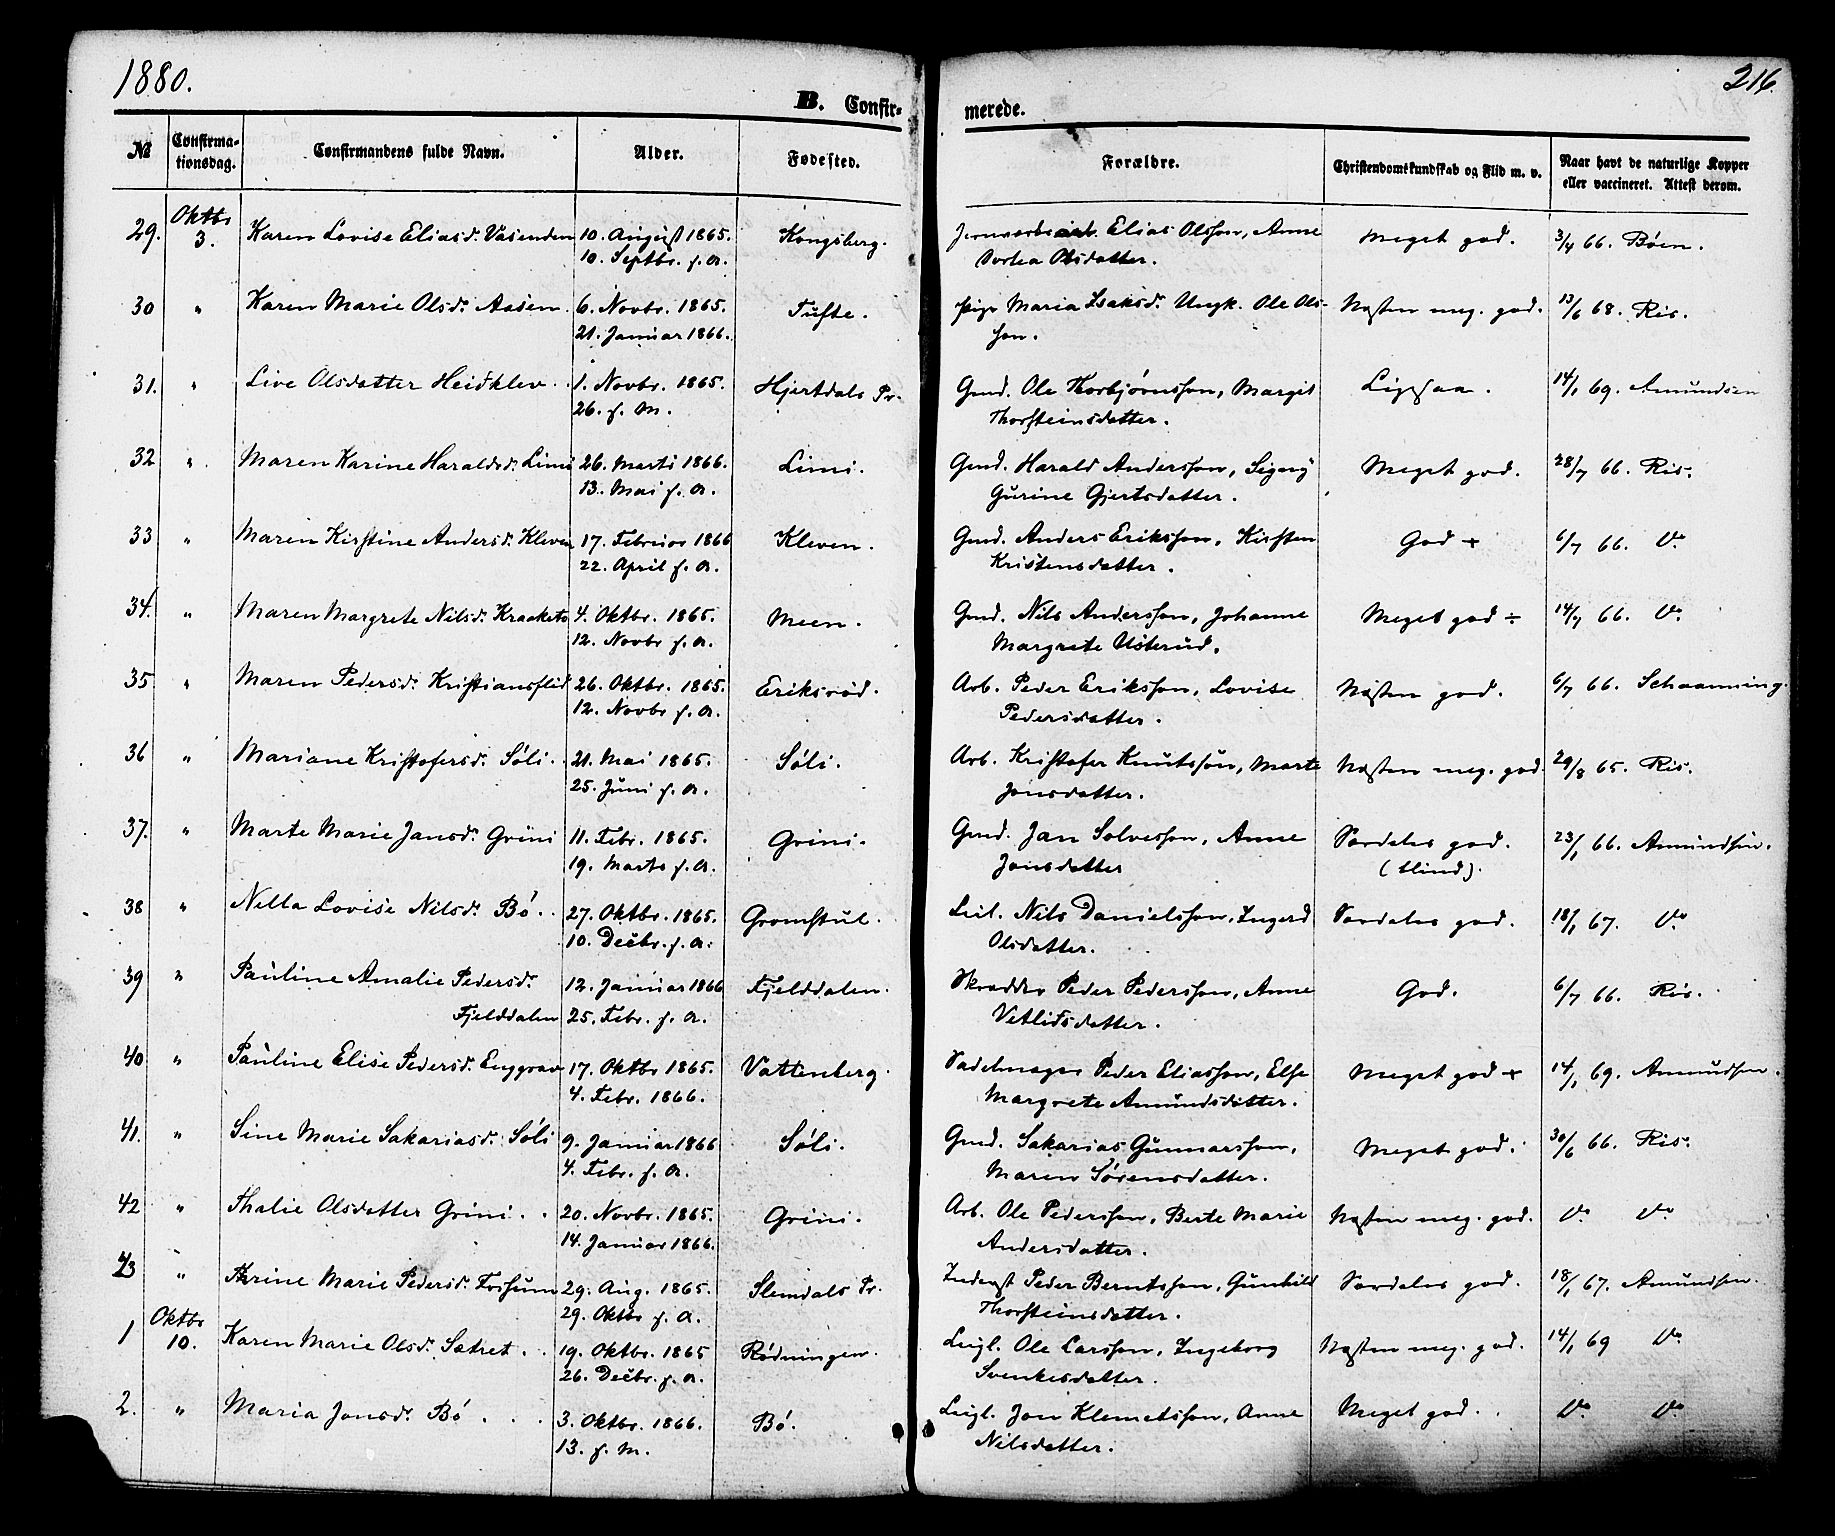 1880.
216.
B. Confir-
merede.
№
Confirma-
tionsdag.
Confirmandens fulde Navn.
Alder.
Fødested.
Forældre.
Christendomskundskab og Flid m. v.
Naar havt de naturlige Kopper
eller vaccineret. Attest derom.
29. Oktbr 3. Karen Lovise Eliasd. Vasenden 10. August 1865. Kongsberg. Elias Olsson, Anne Meget god. 3/4 66. Bøen.
10. Septbr. s. A. Dortea Olsdatter.
30 " Karen Marie Olsd. Aasen. 6. Novbr. 1865. Tufte. Pige Maria Isaksd. Ungk. Ole Ols- Næsten meg. god. 13/6 68. Ris.
21. Januar 1866. son.
31. " Live Olsdatter Heidklev. 1. Novbr. 1865. Hjertdals Pr. Gmd. Ole Thorbjørnsson, Margit Ligesaa. 14/1 69. Amundsen
26. s. M. Thorsteinsdatter.
32 " Maren Karine Haraldsd. Limi 26. Marts 1866. Limi. Gmd. Harald Andersson, Signy Meget god. 28/7 66. Ris.
13. Mai s. A. Gurine Gjertsdatter.
33 " Maren Kirstine Andersd. Kleven 17. Februar 1866 Kleven. Gmd. Anders Eriksson, Kirsten God + 6/7 66. Do
22. April s. A. Kristensdatter.
34. " Maren Margrete Nilsd. Kraaketo 4. Oktbr. 1865. Meen. Gmd. Nils Andersson, Johanne Meget god ÷ 14/7 66. Do
12. Novbr s. A. Margrete Usterud.
35 " Maren Pedersd. Kristiansflid 26. Oktbr. 1865. Eriksrød. Arb. Peder Eriksson, Lovise Næsten god. 6/7 66. Schaanning.
12. Novbr s. A. Pedersdatter.
36 " Mariane Kristofersd. Søli. 21. Mai 1865. Søli. Arb. Kristofer Knutsson, Marte Næsten meg. god. 29/8 65. Ris.
25. Juni s. A. Jonsdatter.
37. " Marte Marie Jansd. Grini 11. Febr. 1865. Grini. Gmd. Jan Solvesson, Anne Særdeles god. 23/1 66. Amundsen.
19. Marts s. A. Jonsdatter (blind).
38 " Nella Lovise Nilsd. Bø. 27. Oktbr. 1865. Gromstul. Leil. Nils Danielsson, Ingerd Særdeles god. 18/1 67. Do
10. Decbr. s. A. Olsdatter.
39 " Pauline Amalie Pedersd. 12. Januar 1866 Fjelddalen. Skrædder Peder Pedersson, Anne God. 6/7 66. Ris.
Fjelddalen 25. Febr. s. A. Vetlidsdatter.
40 " Pauline Elise Pedersd. Enggrav 17. Oktbr 1865. Vattenberg. Sadelmager Peder Eliasson, Else Meget god + 14/1 69. Amundsen.
4. Febr. 1866. Margrete Amundsdatter.
41. " Sine Marie Sakariasd. Søli 9. Januar 1866 Søli. Gmd. Sakarias Gunnarsson, Meget god. 30/6 66. Ris.
4. Febr. s. A. Maren Sørensdatter.
42 " Thalie Olsdatter Grini. 20. Novbr. 1865. Grini. Arb. Ole Pedersson, Berte Marie Næsten meg. god. Do Do
14. Januar 1866. Andersdatter.
43 " Trine Marie Pedersd. Fossum 29. Aug. 1865. Slemdals Pr. Inderst Peder Berntsson, Gunhild Særdeles god. 18/1 67. Amundsen.
29. Oktbr s. A. Thorsteinsdatter.
1 Oktbr 10. Karen Marie Olsd. Sætret. 19. Oktbr. 1865 Rødningen. Leigl. Ole Larsson, Ingeborg Næsten meg. god. 14/1 69 Do
26. Decbr. s. A. Svenkesdatter.
2. " Maria Jonsd. Bø 3. Oktbr. 1866. Bø. Leigl. Jon Klemetsson, Anne Meget god. Do Do
13. s. M. Nilsdatter.